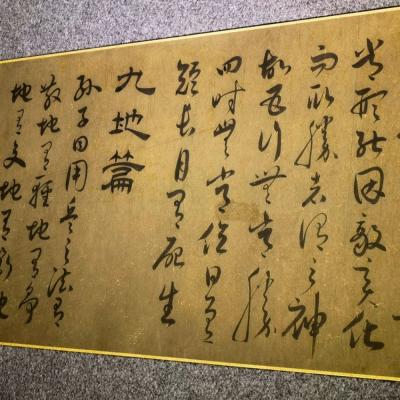 常形能因敵變化
而取勝者謂之神
故五行無常勝
四時無常位日有
短長月有死生
九地篇
孫子曰用兵之法有
散地有輕地有爭
地有交地有衢地